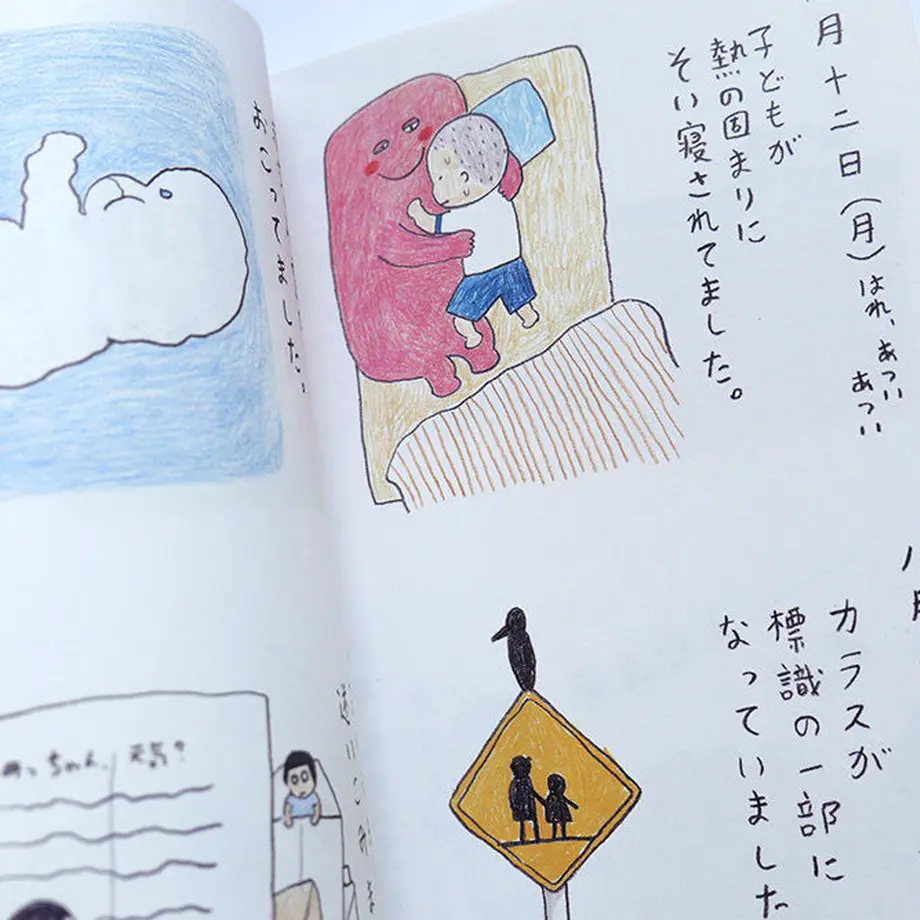 月十二日（月）はれ、あつい
あつい
子どもが
熱の固まりに
そい寝されてました。
カラスが
標識の一部に
なっていました
おこってました。
っちゃん、元気？